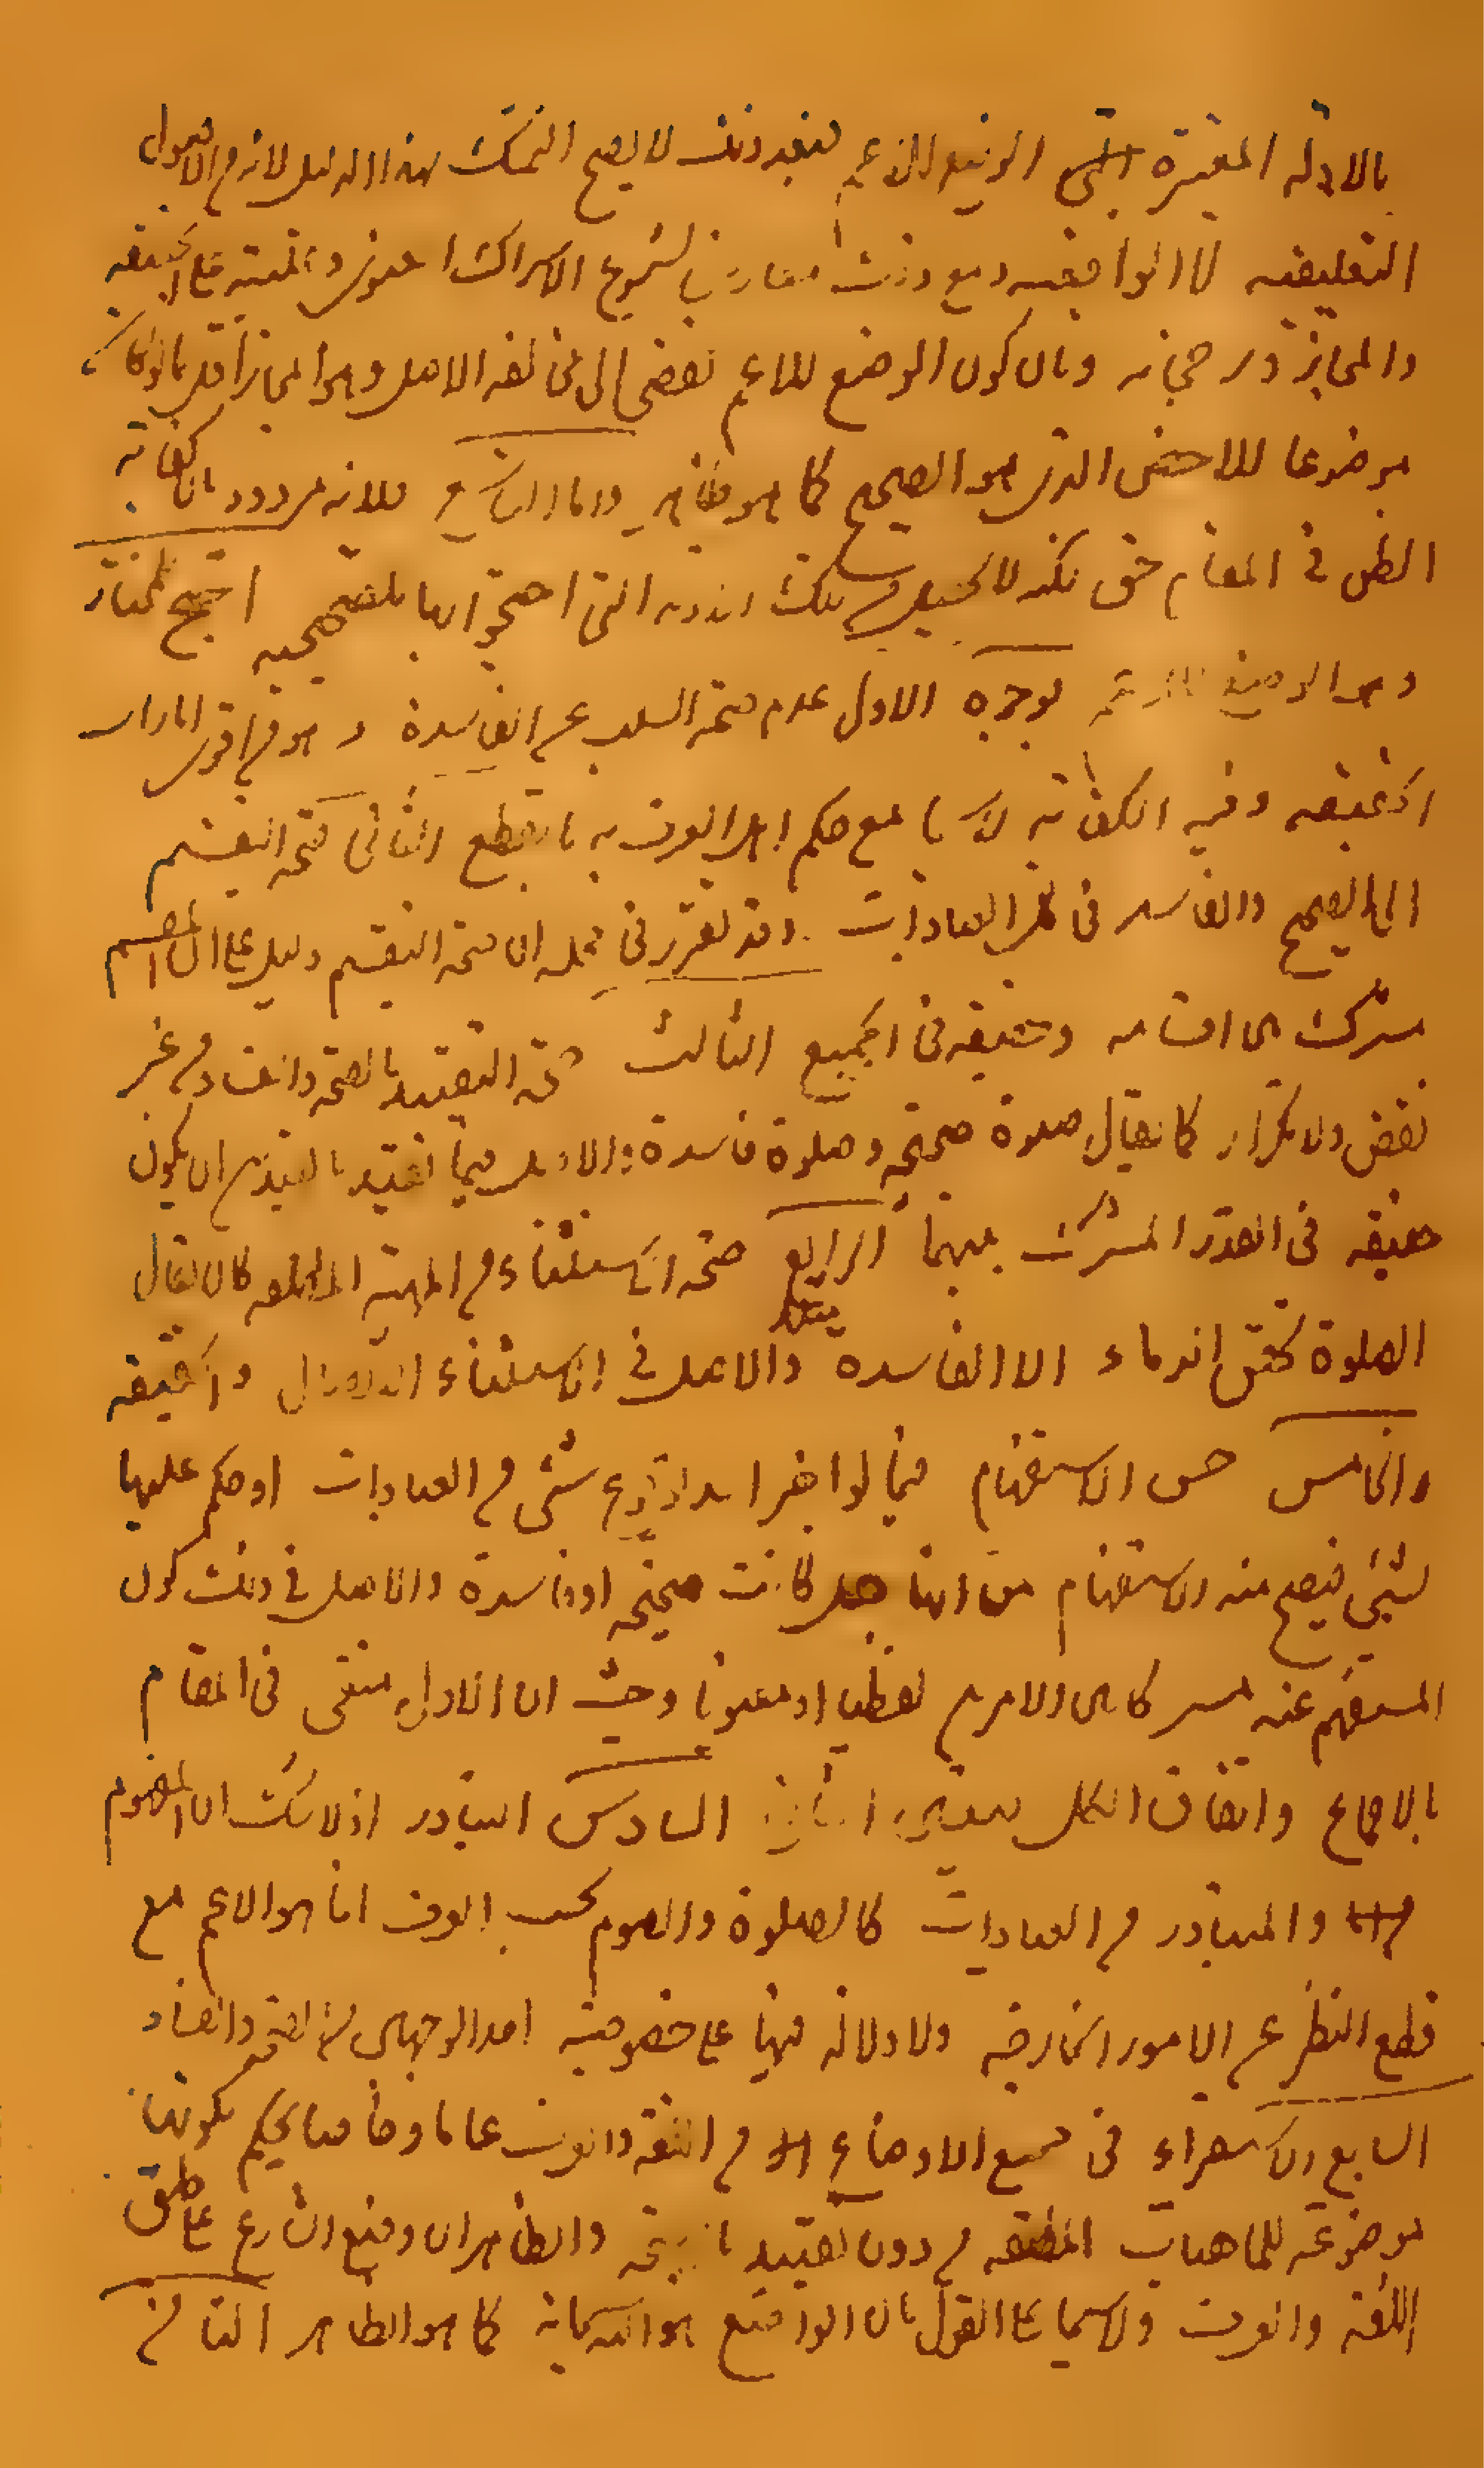 بالادلة المعتبرة الوضع للاعم فبعد ذلك لا يصح التمسك بهذا الدليل لانه من الاصول
التعليقيه لا الواقعيه ومع ذلك معارض بشيوع الاشتراك المعنوى وغلبته على الحقيقه
والمجاز ورجحانه وبان كون الوضع للاعم يفضى الى مخالفه الاصل وهو المجاز اقل مما لو كان
موضوعا للاخص الذى هو الصحيح كما هو ظاهر واما التاسع فلانه مردود بان كفاية
الظن فى المقام حق لكنه لا يحصل من تلك الادلة التى احتجوا بها للصحيحيه احتج للمختار
وهو الوضع للاعم بوجوه الاول عدم صحة السلب عن الفاسدة وهو من اقوى امارات
الحقيقه وفيه الكفاية لا سيما مع حكم اهل العرف به بالقطع الثانى صحة التقسيم
الى الصحيح والفاسد فى كل العبادات وقد تقرر فى محله ان صحة التقسيم دليل على ان المقسم
مشترك بين اقسامه وحقيقه فى الجميع الثالث صحة التقييد بالصحة والفساد من غير
نقض ولا تكرار كما يقال صلوة صحيحة وصلوة فاسدة والاصل فيما تقيد بالقيدين ان يكون
حقيقه فى القدر المشترك بينهما الرابع صحة الاستثناء من المهية المطلقه كان يقال
الصلوة تحقق الدماء الا الفاسدة والاصل فى الاستثناء الاتصال والحقيقه
والخامس حسن الاستفهام فيما لو اخبر احد بوقوع شئ من العبادات او حكم عليها
بشئ فيصح منه الاستفهام من انها هل كانت صحيحة او فاسدة والاصل فى ذلك كون
المستفهم عنه مشتركا بين الامرين لفظيا او معنويا وحيث ان الاول منتفى فى المقام
بالاجماع واتفاق الكل يتعين الثانى السادس التبادر اذ لا شك ان المفهوم
والمتبادر من العبادات كالصلوة والصوم بحسب العرف انما هو الاعم مع
قطع النظر عن الامور الخارجيه ولا دلالة فيها على خصوصية احد الوجهين من الصحة والفساد
السابع الاستقراء فى جميع الاوضاع من اللغة والعرف عاما وخاصا يحكم بكونها
موضوعة للماهيات المطلقه من دون تقييد بالصحة والظاهر ان وضع الشارع على طبق
اللغة والعرف ولا سيما على القول بان الواضع هو الله سبحانه كما هو الظاهر الثامن